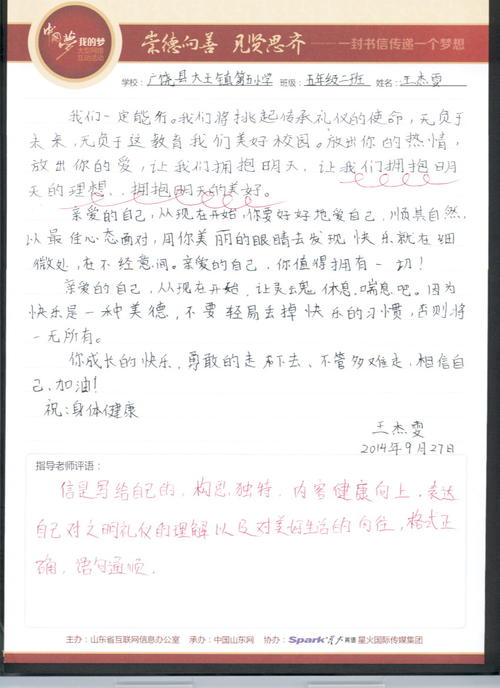 中国梦 我的梦
大型网络
互动活动
崇德向善 见贤思齐 一封书信传递一个梦想
学校：广饶县大王镇第五小学 班级：五年级二班 姓名：王杰雯
我们一定能行。我们将挑起传承礼仪的使命，无负于
未来，无负于这教育我们美好校园。放出你的热情，
放出你的爱，让我们拥抱明天，让我们拥抱明
天的理想，拥抱明天的美好。
亲爱的自己，从现在开始，你要好好地爱自己，顺其自然，
以最佳心态面对，用你美丽的眼睛去发现快乐就在细
微处，在不经意间。亲爱的自己，你值得拥有一切！
亲爱的自己，从现在开始，让灵魂休息、喘息吧。因为
快乐是一种美德，不要轻易去掉快乐的习惯，否则将
一无所有。
你成长的快乐，勇敢的走下去、不管多难走，相信自
己，加油！
祝：身体健康
王杰雯
2014年9月27日
指导老师评语：
信是写给自己的，构思独特，内容健康向上，表达
自己对文明礼仪的理解以及对美好生活的向往，格式正
确，语句通顺。
主办：山东省互联网信息办公室 承办：中国山东网 协办：Spark星火英语 星火国际传媒集团